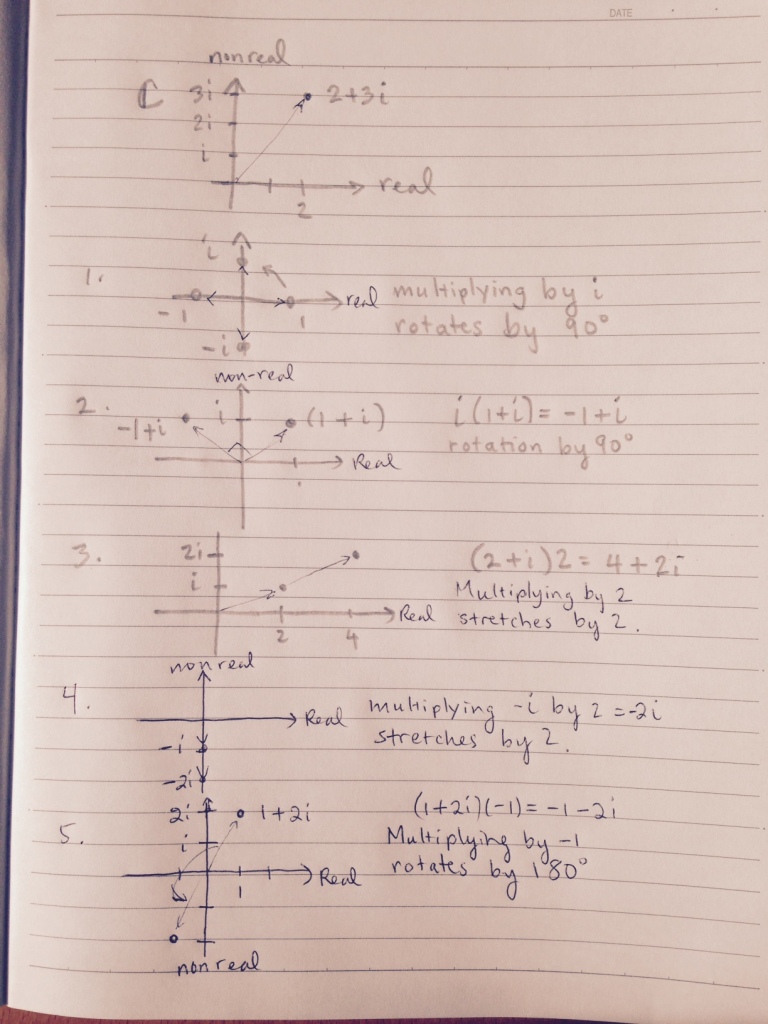 DATE
nonreal
C 3i 2+3i
2i
i
real
2
1. i
-1 1 real multiplying by i
-i rotates by 90°
non-real
2. -1+i i (1+i) i(1+i)= -1+i
Real rotation by 90°
3. 2i (2+i)2= 4+2i
i Multiplying by 2
Real stretches by 2.
2 4
nonreal
4. Real multiplying -i by 2 =-2i
-i stretches by 2.
-2i
5. 2i 1+2i (1+2i)(-1)= -1-2i
i Multiplying by -1
1 Real rotates by 180°
nonreal